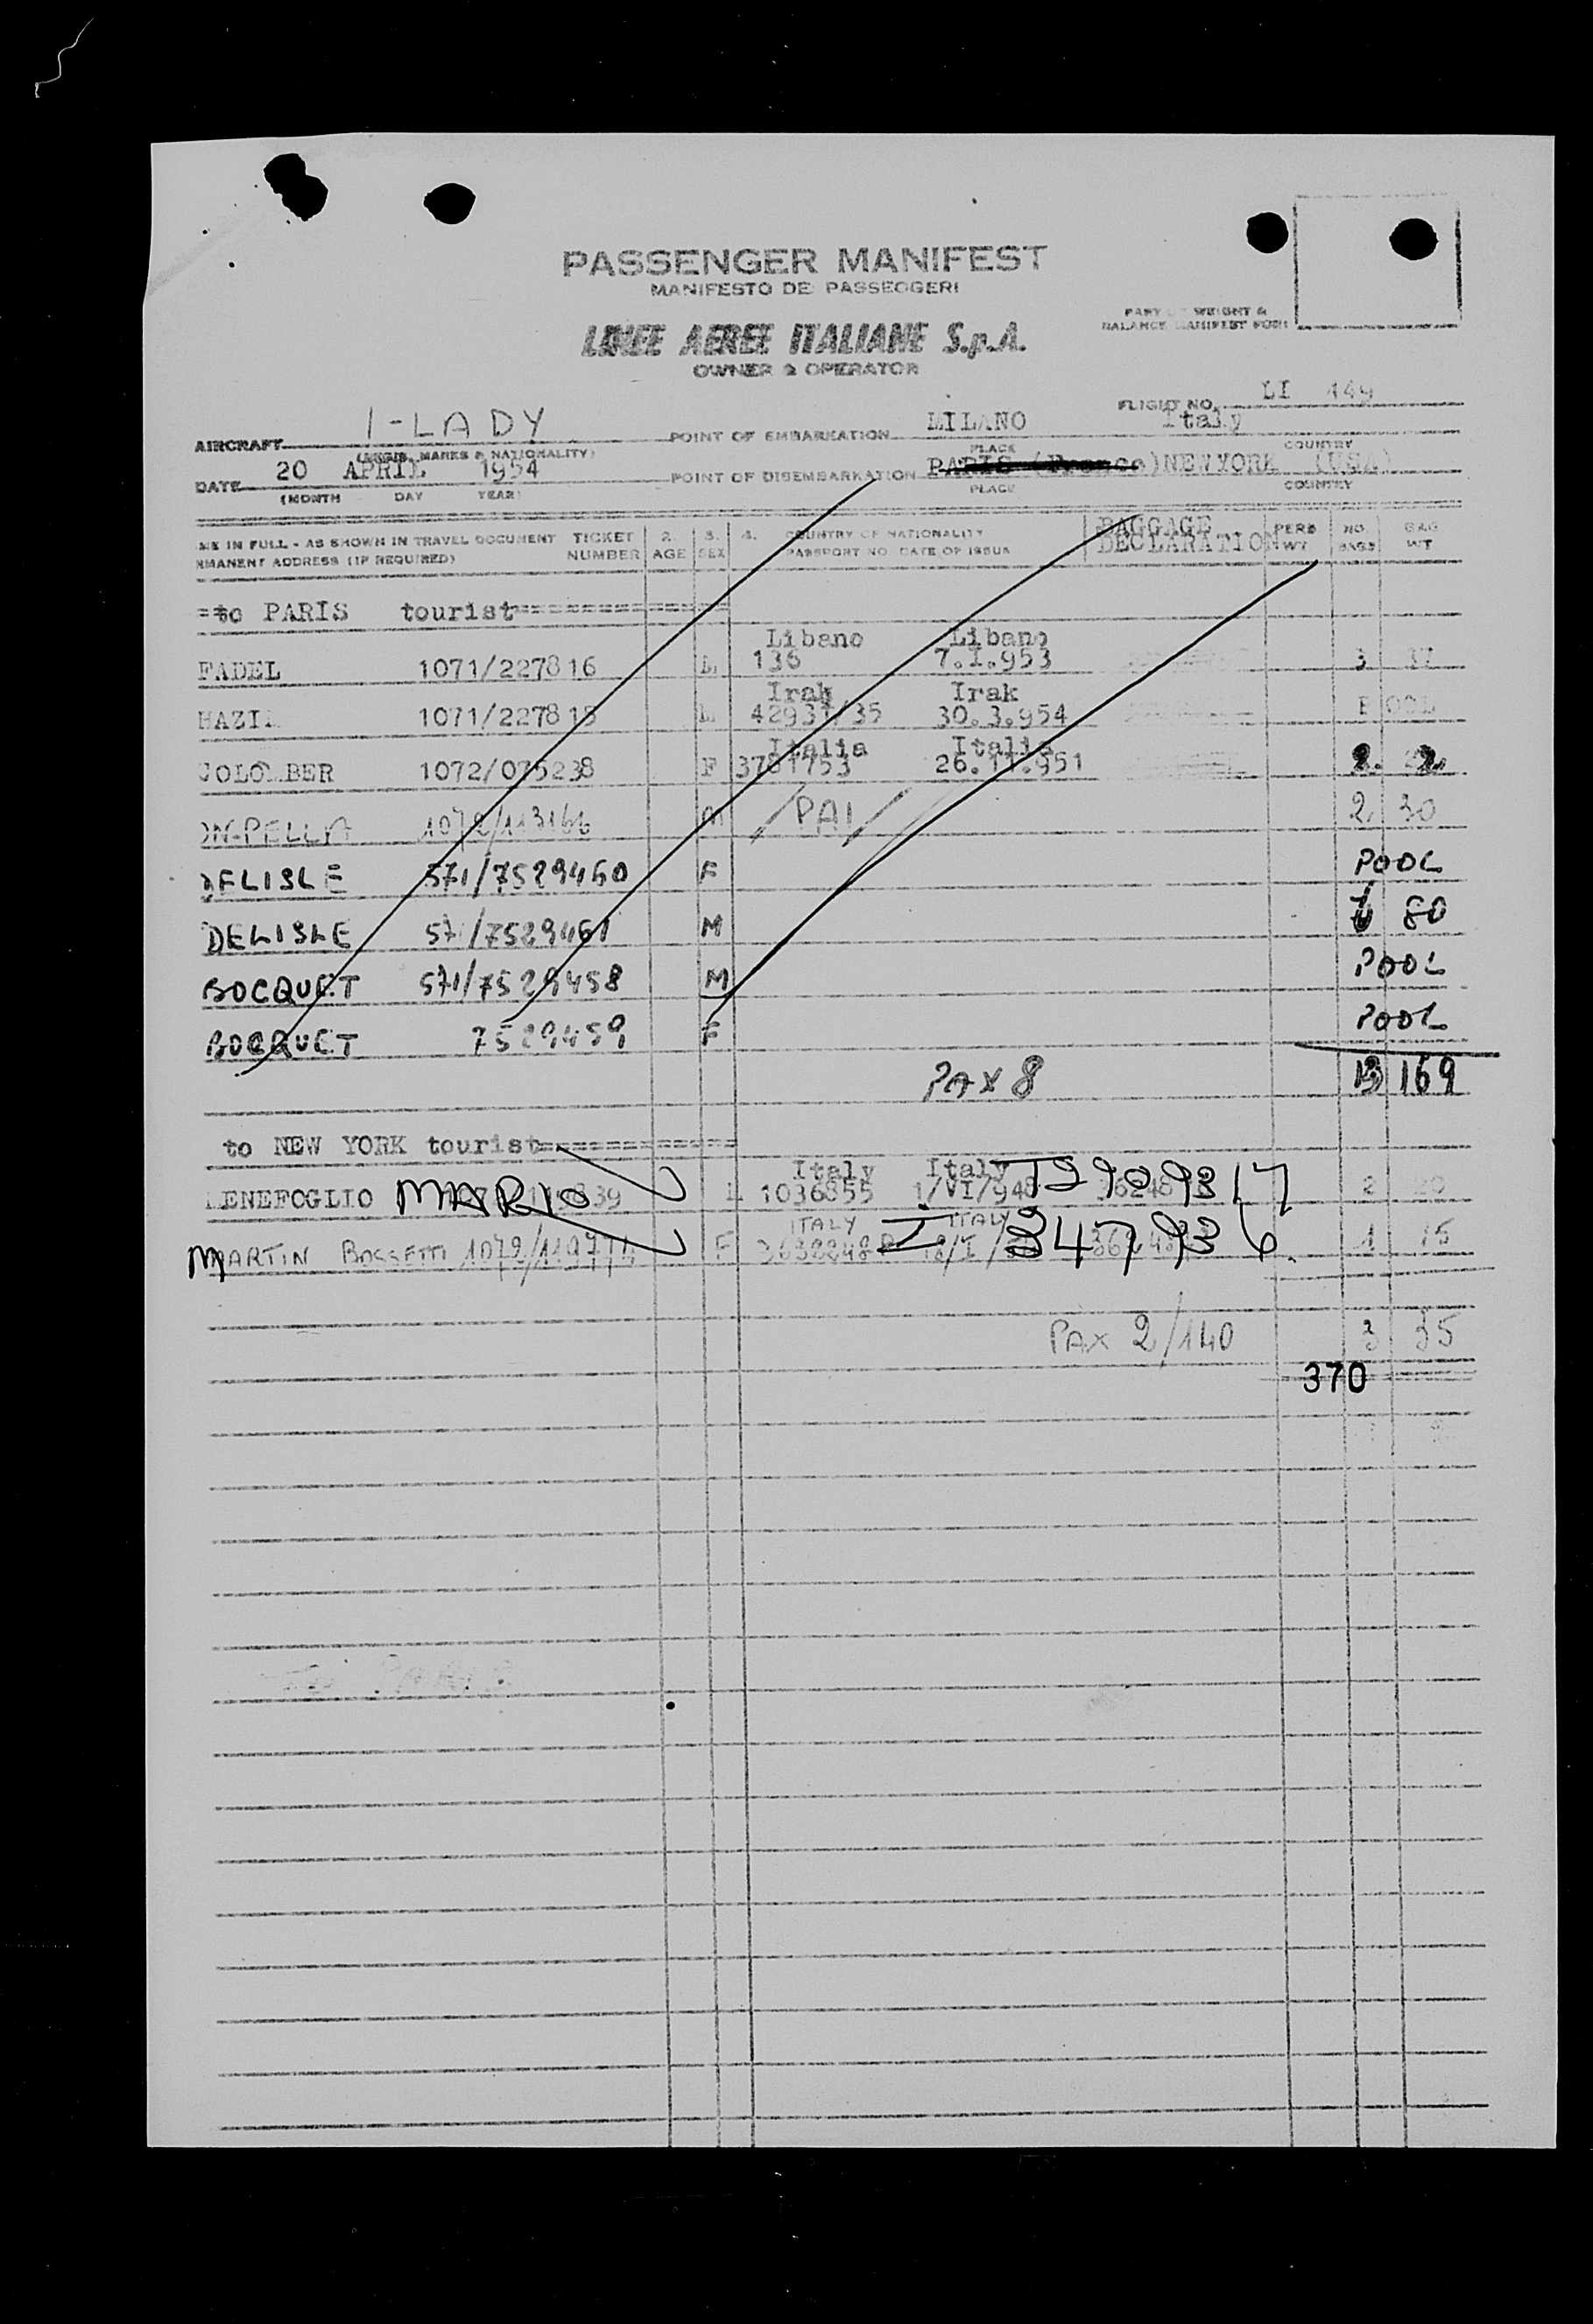 PASSENGER MANIFEST
MANIFESTO DEI PASSEGGERI
LINEE AEREE ITALIANE S.p.A.
OWNER & OPERATOR
PART WEIGHT &
BALANCE MANIFEST FORM
FLIGHT NO. LI 449
AIRCRAFT I-LADY POINT OF EMBARKATION MILANO Italy
(REGIS. MARKS & NATIONALITY) PLACE COUNTRY
DATE 20 APRIL 1954 POINT OF DISEMBARKATION PARIS (France) NEWYORK (USA)
(MONTH DAY YEAR) PLACE COUNTRY
ME IN FULL - AS SHOWN IN TRAVEL DOCUMENT TICKET 2. 3. 4. COUNTRY OF NATIONALITY BAGGAGE PERS NO. BAG
RMANENT ADDRESS (IF REQUIRED) NUMBER AGE SEX PASSPORT NO. DATE OF ISSUE DECLARATION WT BAGS WT
=to PARIS tourist=============
Libano Libano
FADEL 1071/227816 136 7.1.953 3
Irak Irak
1071/227815 42931/35 30.3.954 POOL
Italia Italia
COLOMBER 1072/075238 F 3781753 26.11.951 2
ON-PELLA M PAI 2 30
DELISLE 571/7529460 F POOL
DELISLE 571/7529461 M 80
BOCQUET 571/7529458 M POOL
BOCQUET 7529459 F POOL
PAX 8 13 169
to NEW YORK tourist============
Italy Italy
ENEFOGLIO MARIO 39 1036855 1/VI/948 2 20
ITALY ITALY
MARTIN BOSSETTI F 1 15
PAX 2/140 3 35
370